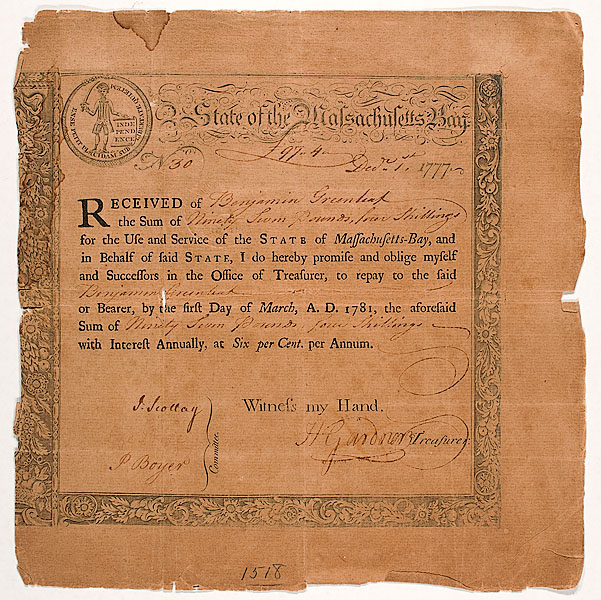 ENSE PETIT PLACIDAM SUB
INDE
PEND
ENCE
State of the Maſſachuſetts Bay
No 30
£97..4..
Decr. 1st 1777
RECEIVED of Benjamin Greenleaf
the Sum of Ninety Seven Pounds, four Shillings
for the Uſe and Service of the STATE of Maſſachuſetts-Bay, and
in Behalf of ſaid STATE, I do hereby promiſe and oblige myſelf
and Succeſſors in the Office of Treaſurer, to repay to the ſaid
Benjamin Greenleaf
or Bearer, by the firſt Day of March, A. D. 1781, the aforeſaid
Sum of Ninety Seven Pounds, four Shillings
with Intereſt Annually, at Six per Cent. per Annum.
J. Scollay
Witneſs my Hand,
H Gardner Treaſurer
P. Boyer
Committee.
1518